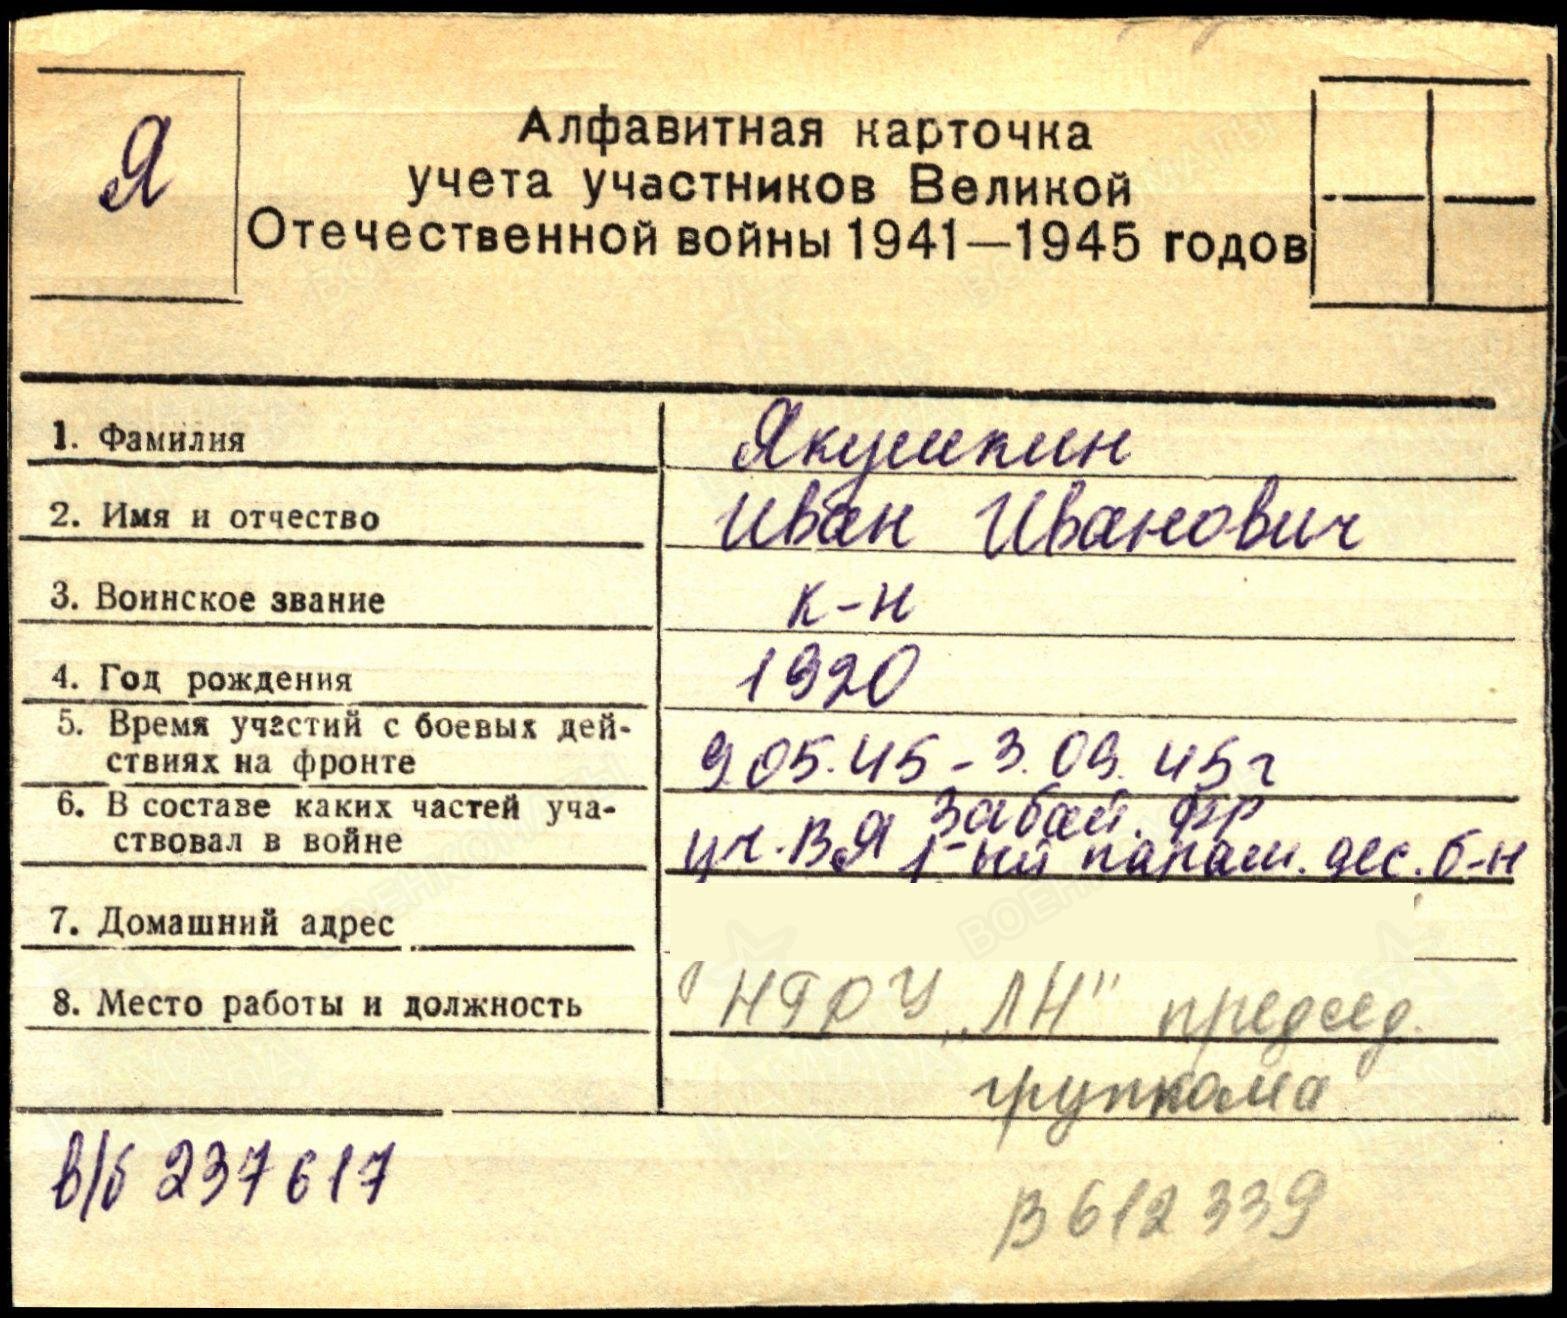 Я
Алфавитная карточка
учета участников Великой
Отечественной войны 1941—1945 годов
1. Фамилия Якушкин
2. Имя и отчество Иван Иванович
3. Воинское звание к-н
4. Год рождения 1920
5. Время участий с боевых дей-
ствиях на фронте 9.05.45 - 3.09.45г
6. В составе каких частей уча-
ствовал в войне уч. ВЯ Забай. фр
1-ый параш. дес. б-н
7. Домашний адрес
8. Место работы и должность НГРЧ „ЛН" председ.
групкома
в/б 237617
В 612339